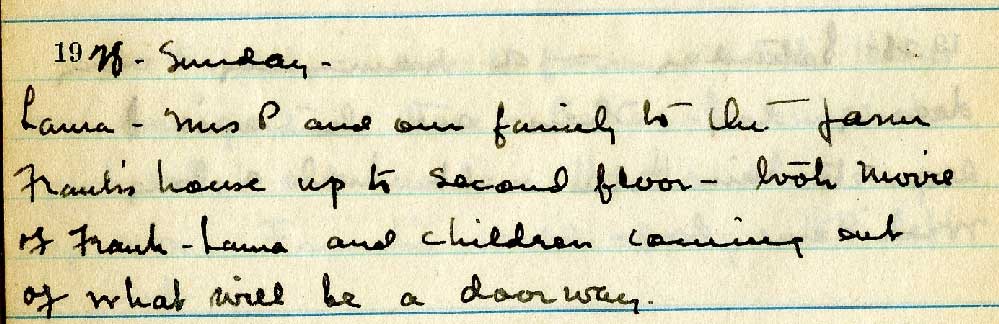 19 Sunday -
Laura - Mrs P and our family to the farm
Frank's house up to second floor - took movie
of Frank - Laura and children coming out
of what will be a doorway.